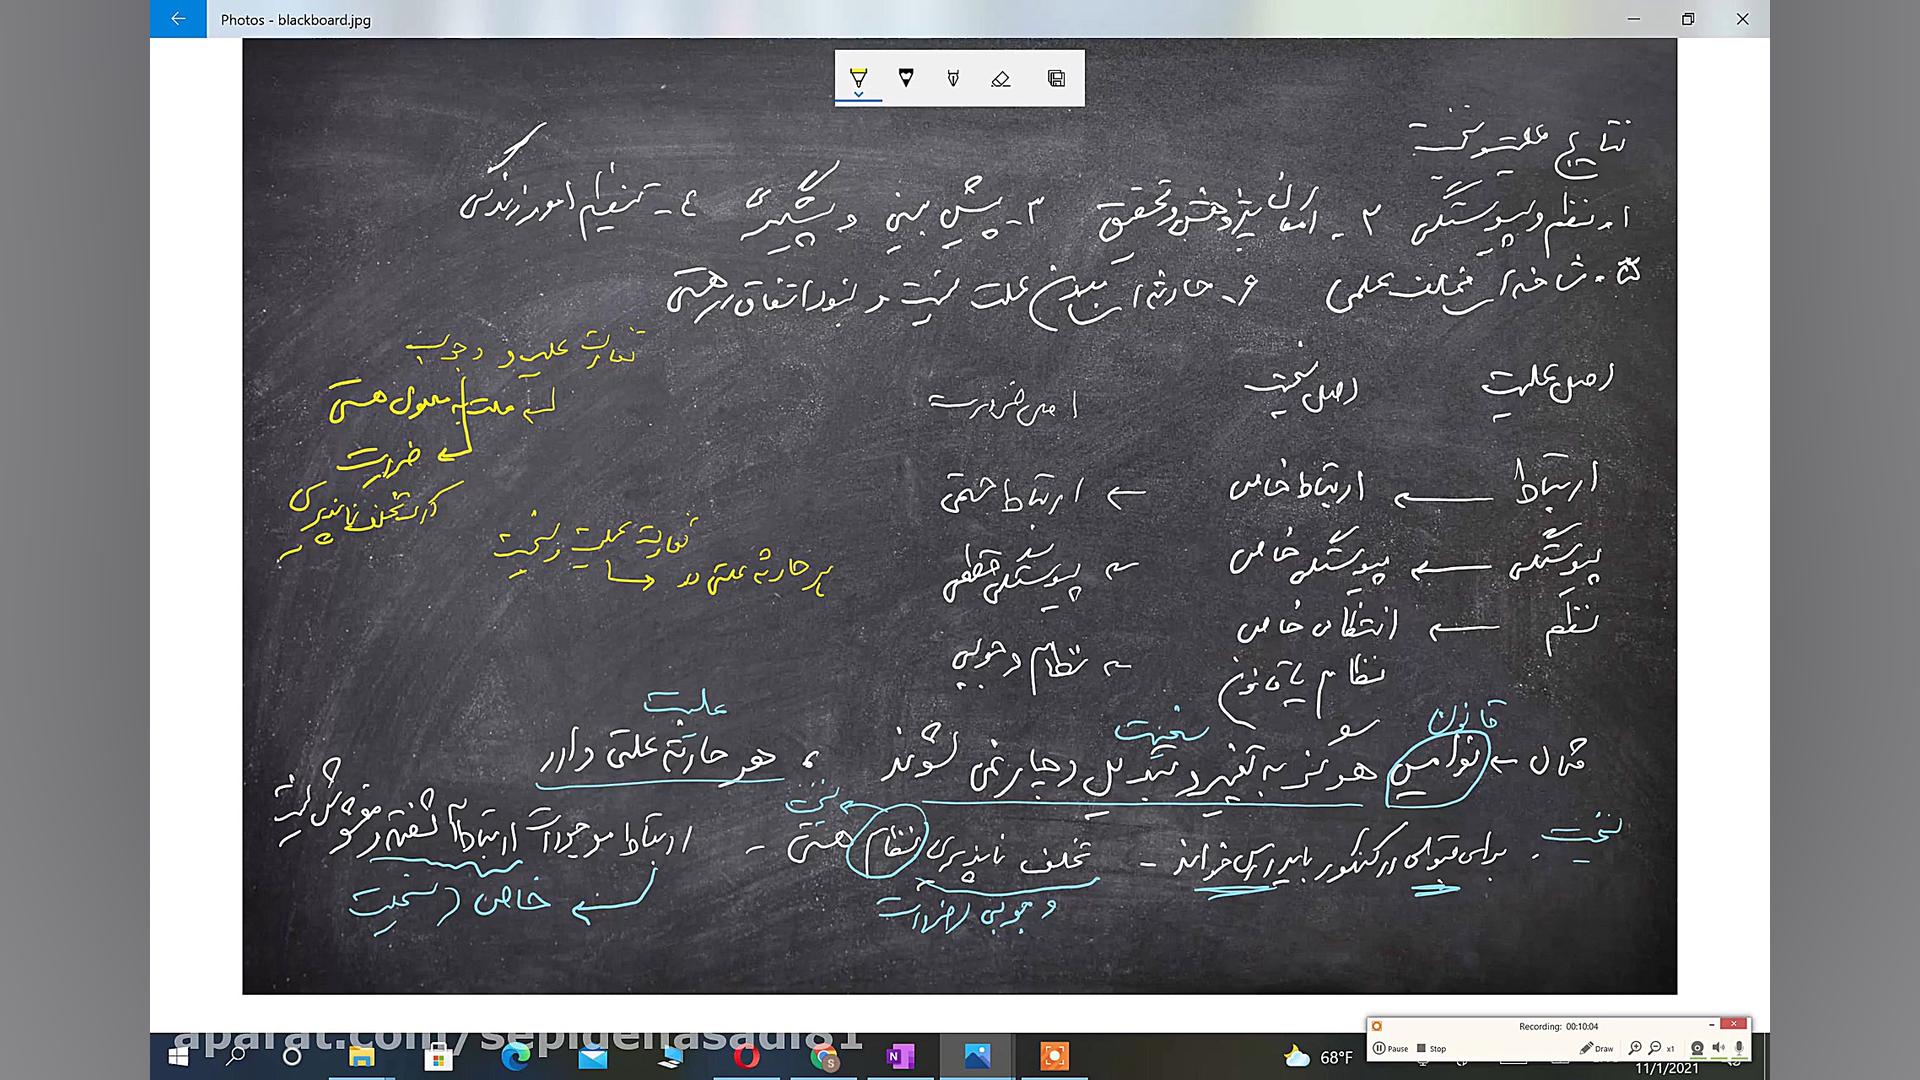 Photos - blackboard.jpg
نتایج علیت و سنخیت
۱. نظم و پیوستگی ۲. امکان پژوهش و تحقیق ۳. پیش بینی و پیشگیری ٤. تنظیم امور زندگی
۵. شاخه های مختلف علمی ۶. حادثه ای بدون علت نیست و نبود اتفاق در هستی
اصل علیت اصل سنخیت اصل ضرورت
ارتباط ← ارتباط خاص ← ارتباط حتمی
پیوستگی ← پیوستگی خاص ← پیوستگی قطعی
نظم ← انتظام خاص
نظام یا قانون ← نظام وجوبی
تفاوت علیت و وجوب
علت به معلول هستی
ضرورت
تخلف ناپذیری
تفاوت علیت و سنخیت
هر حادثه علتی دارد
قانون سنخیت علیت
مثال ← نوامیس هرگز به تغییر و تبدیل دچار نمی شوند ، هر حادثه علتی دارد
سنخیت . برای قبولی در کنکور باید درس خواند - تخلف ناپذیری نظام هستی - ارتباط موجودات ارتباط آشفته و مغشوش نیست
سنخیت
وجوبی / ضرورت
خاص / سنخیت
aparat.com/sepidehasadi81
Recording: 00:10:04
Pause Stop Draw x1
68°F
11/1/2021